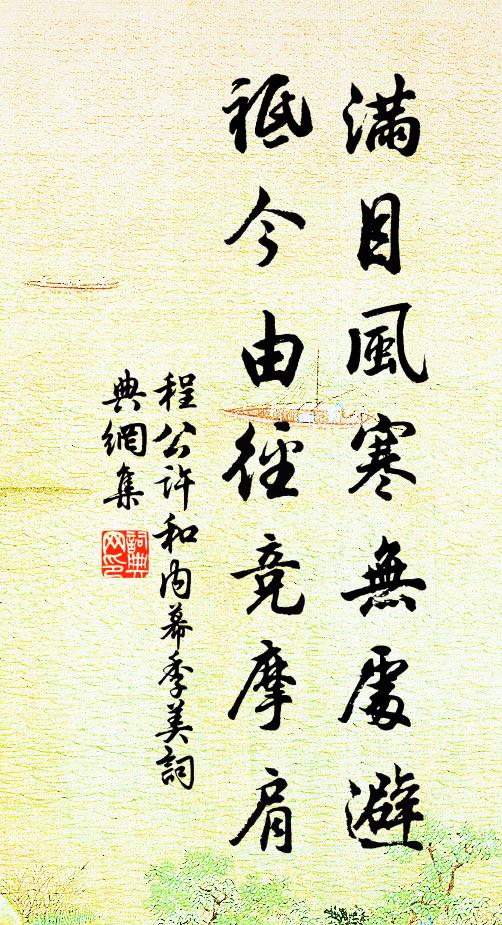 滿目風寒無處避
祗今由徑競摩肩
程公許和內幕季美詞
典網集
詞典
网印